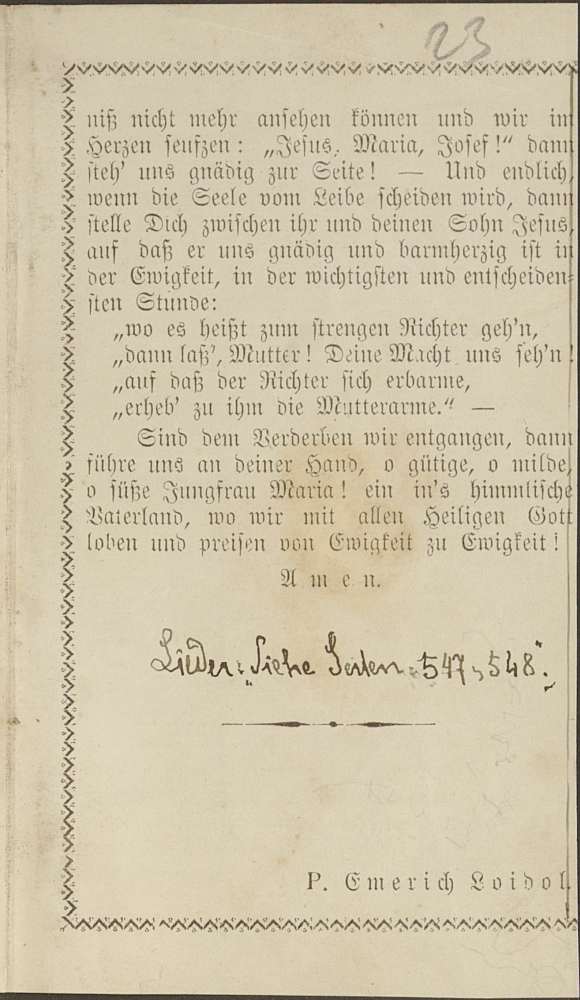 23
niß nicht mehr ansehen können und wir im
Herzen seufzen: „Jesus, Maria, Josef!“ dann
steh' uns gnädig zur Seite! — Und endlich,
wenn die Seele vom Leibe scheiden wird, dann
stelle Dich zwischen ihr und deinen Sohn Jesus,
auf daß er uns gnädig und barmherzig ist in
der Ewigkeit, in der wichtigsten und entscheiden-
sten Stunde:
„wo es heißt zum strengen Richter geh'n,
„dann laß', Mutter! Deine Macht uns seh'n!
„auf daß der Richter sich erbarme,
„erheb' zu ihm die Mutterarme.“ —
Sind dem Verderben wir entgangen, dann
führe uns an deiner Hand, o gütige, o milde,
o süße Jungfrau Maria! ein in's himmlische
Vaterland, wo wir mit allen Heiligen Gott
loben und preisen von Ewigkeit zu Ewigkeit!
Amen.
Lieder: „Siehe Seiten: 547, 548“.
P. Emerich Loidol.